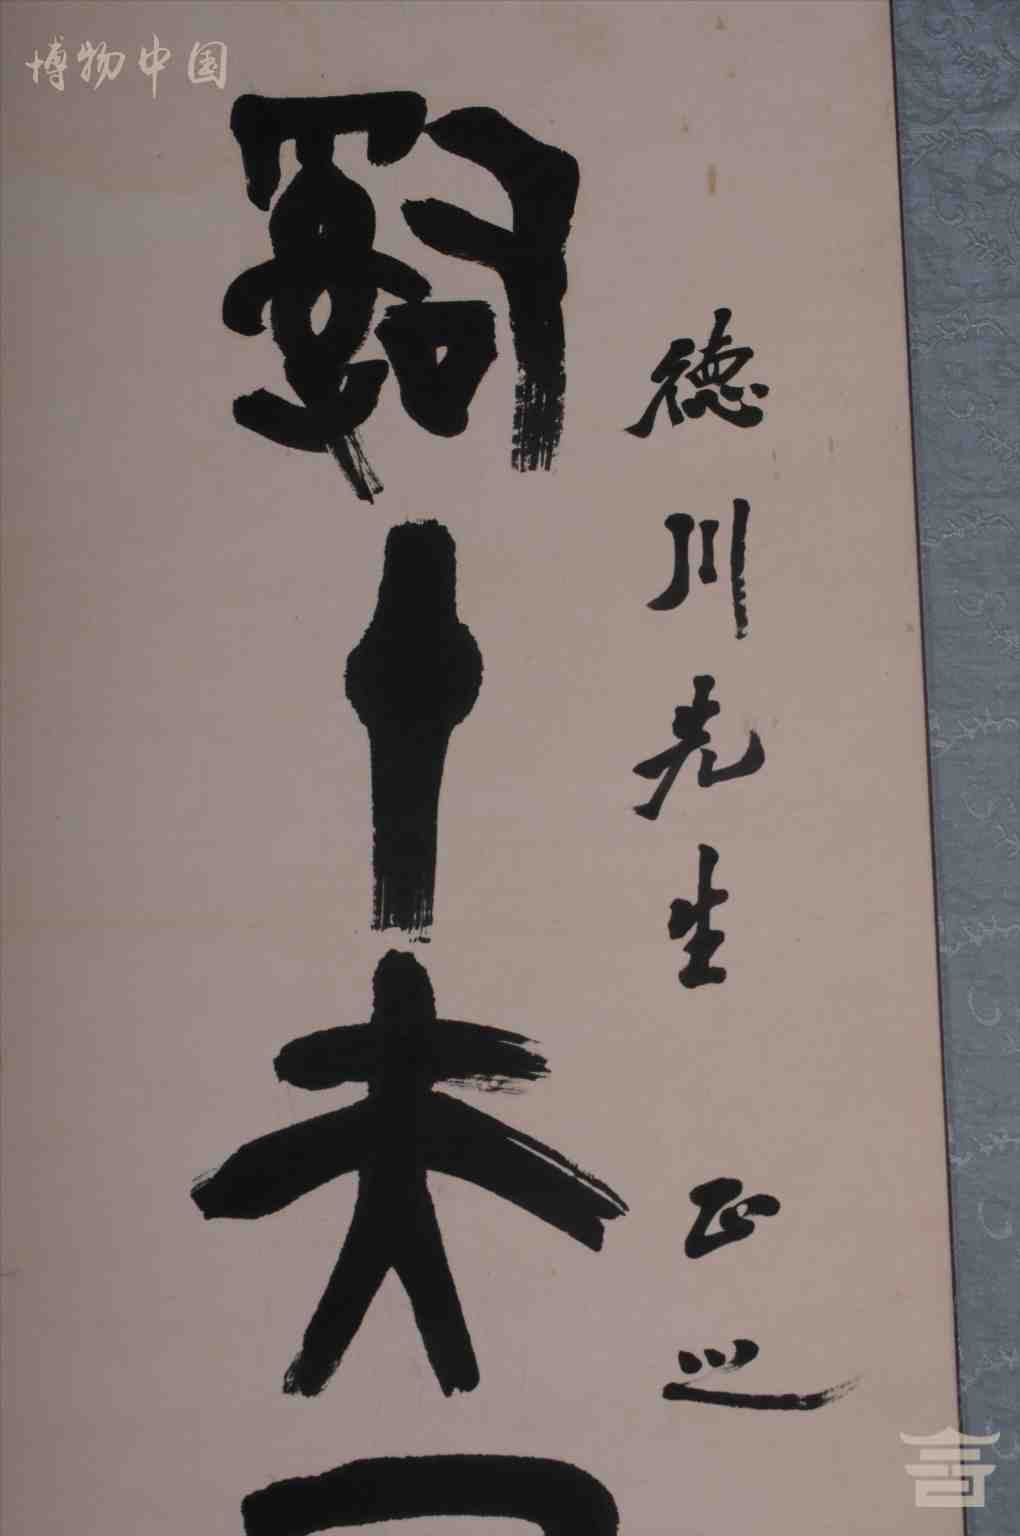 博物中国
德川先生 正之
十夫